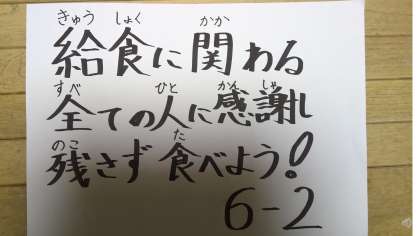 きゅう しょく かか
給食に関わる
すべ ひと かん しゃ
全ての人に感謝し
のこ た
残さず食べよう!
6-2